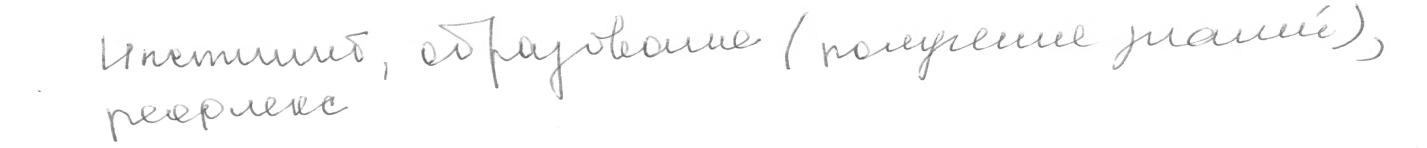 Инстинкт, образование (получение знаний),
рефлекс